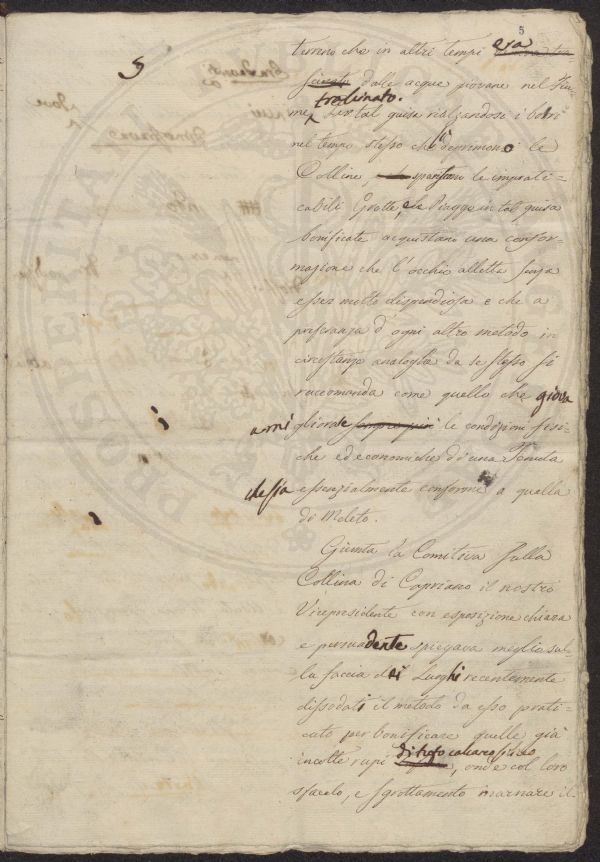 5
5
terreno che in altri tempi era
dalle acque piovane nel Fiu-
trascinato.
me, In tal guisa rialzandosi i borri
nel tempo stesso che si deprimono le
Colline, spariscono le imprati-
cabili Grotte, e le Piagge in tal guisa
bonificate acquistano una confor-
mazione che l'occhio alletta senza
esser molto dispendiosa e che a
preferenza d'ogni altro metodo in
circostanze analoghe da se stesso si
raccomanda come quello che giova
a migliorare sempre più le condizioni fisi-
che ed economiche d'una Tenuta
che sia essenzialmente conforme a quella
di Meleto.
Giunta la Comitiva sulla
Collina di Capriano il nostro
Vicepresidente con esposizione chiara
e persuadente spiegava meglio sul-
la faccia dei Luoghi recentemente
dissodati il metodo da esso prati-
cato per bonificare quelle già
incolte rupi di tufo calcareo siliceo, onde col loro
sfacelo, e sgrottamento marnare il